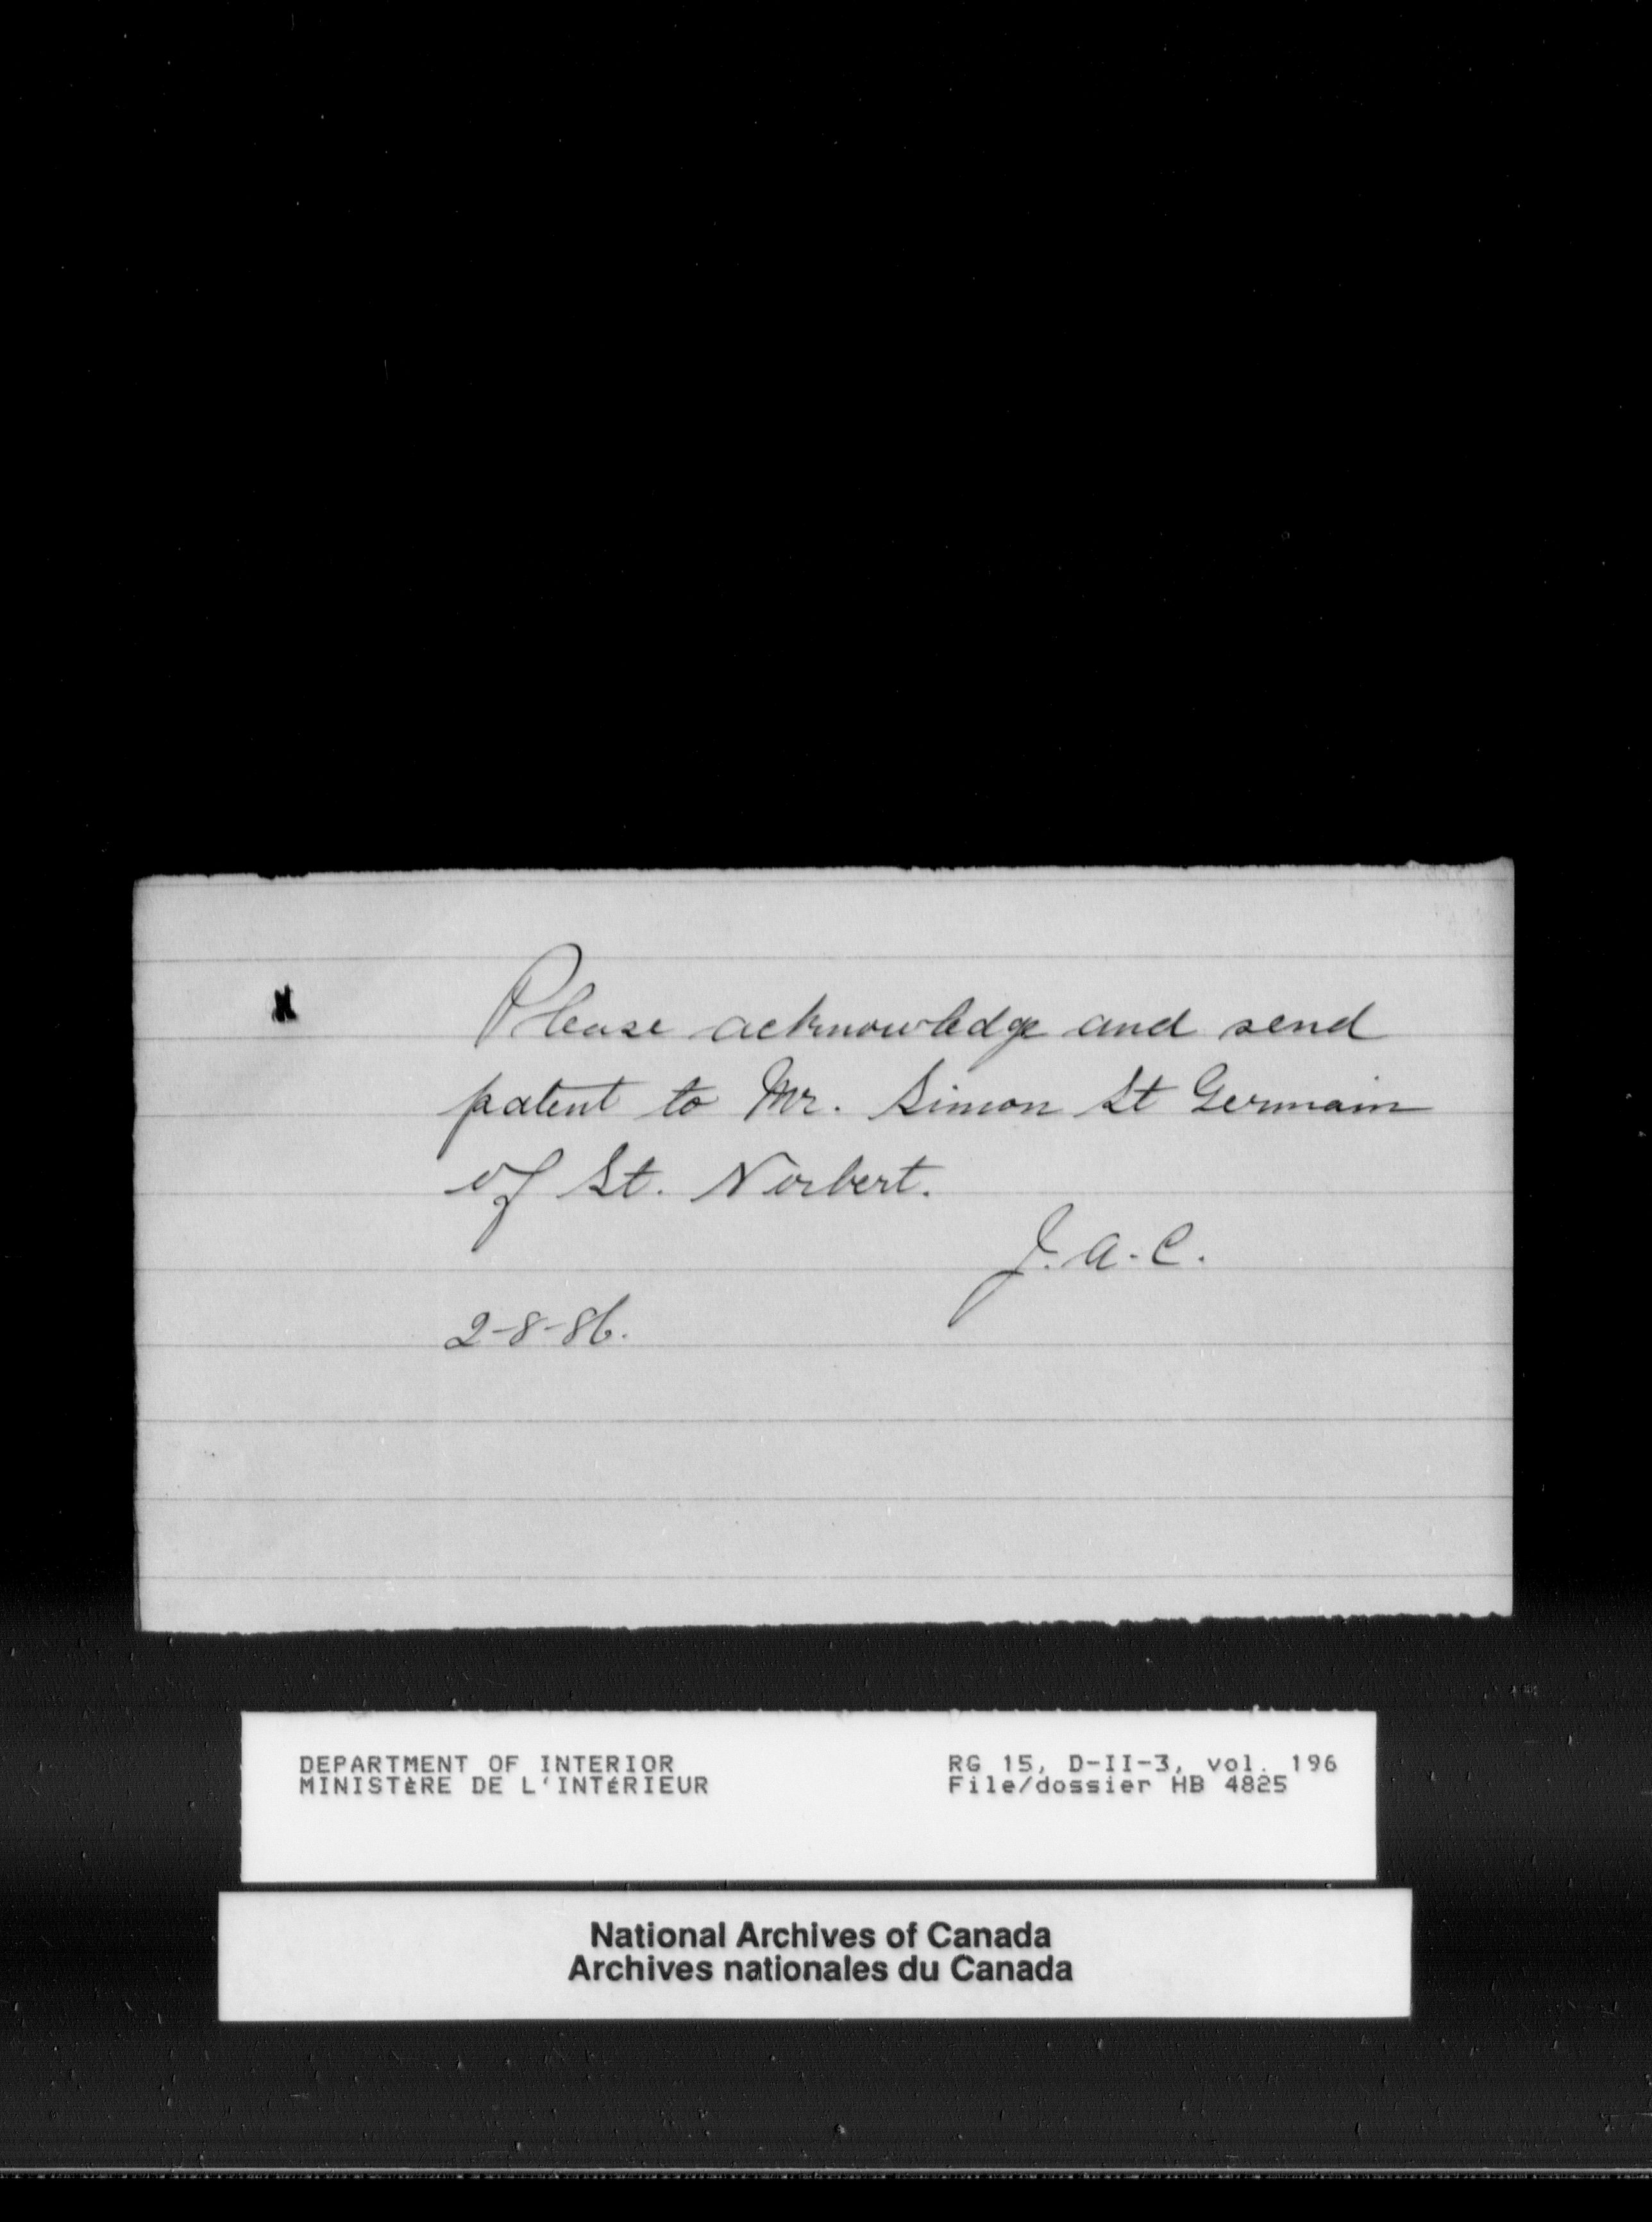 Please acknowledge and send
patent to Mr. Simon St Germain
of St. Norbert.
J. A. C.
2-8-86.
DEPARTMENT OF INTERIOR
MINISTÈRE DE L'INTÉRIEUR
RG 15, D-II-3, vol. 196
File/dossier HB 4825
National Archives of Canada
Archives nationales du Canada